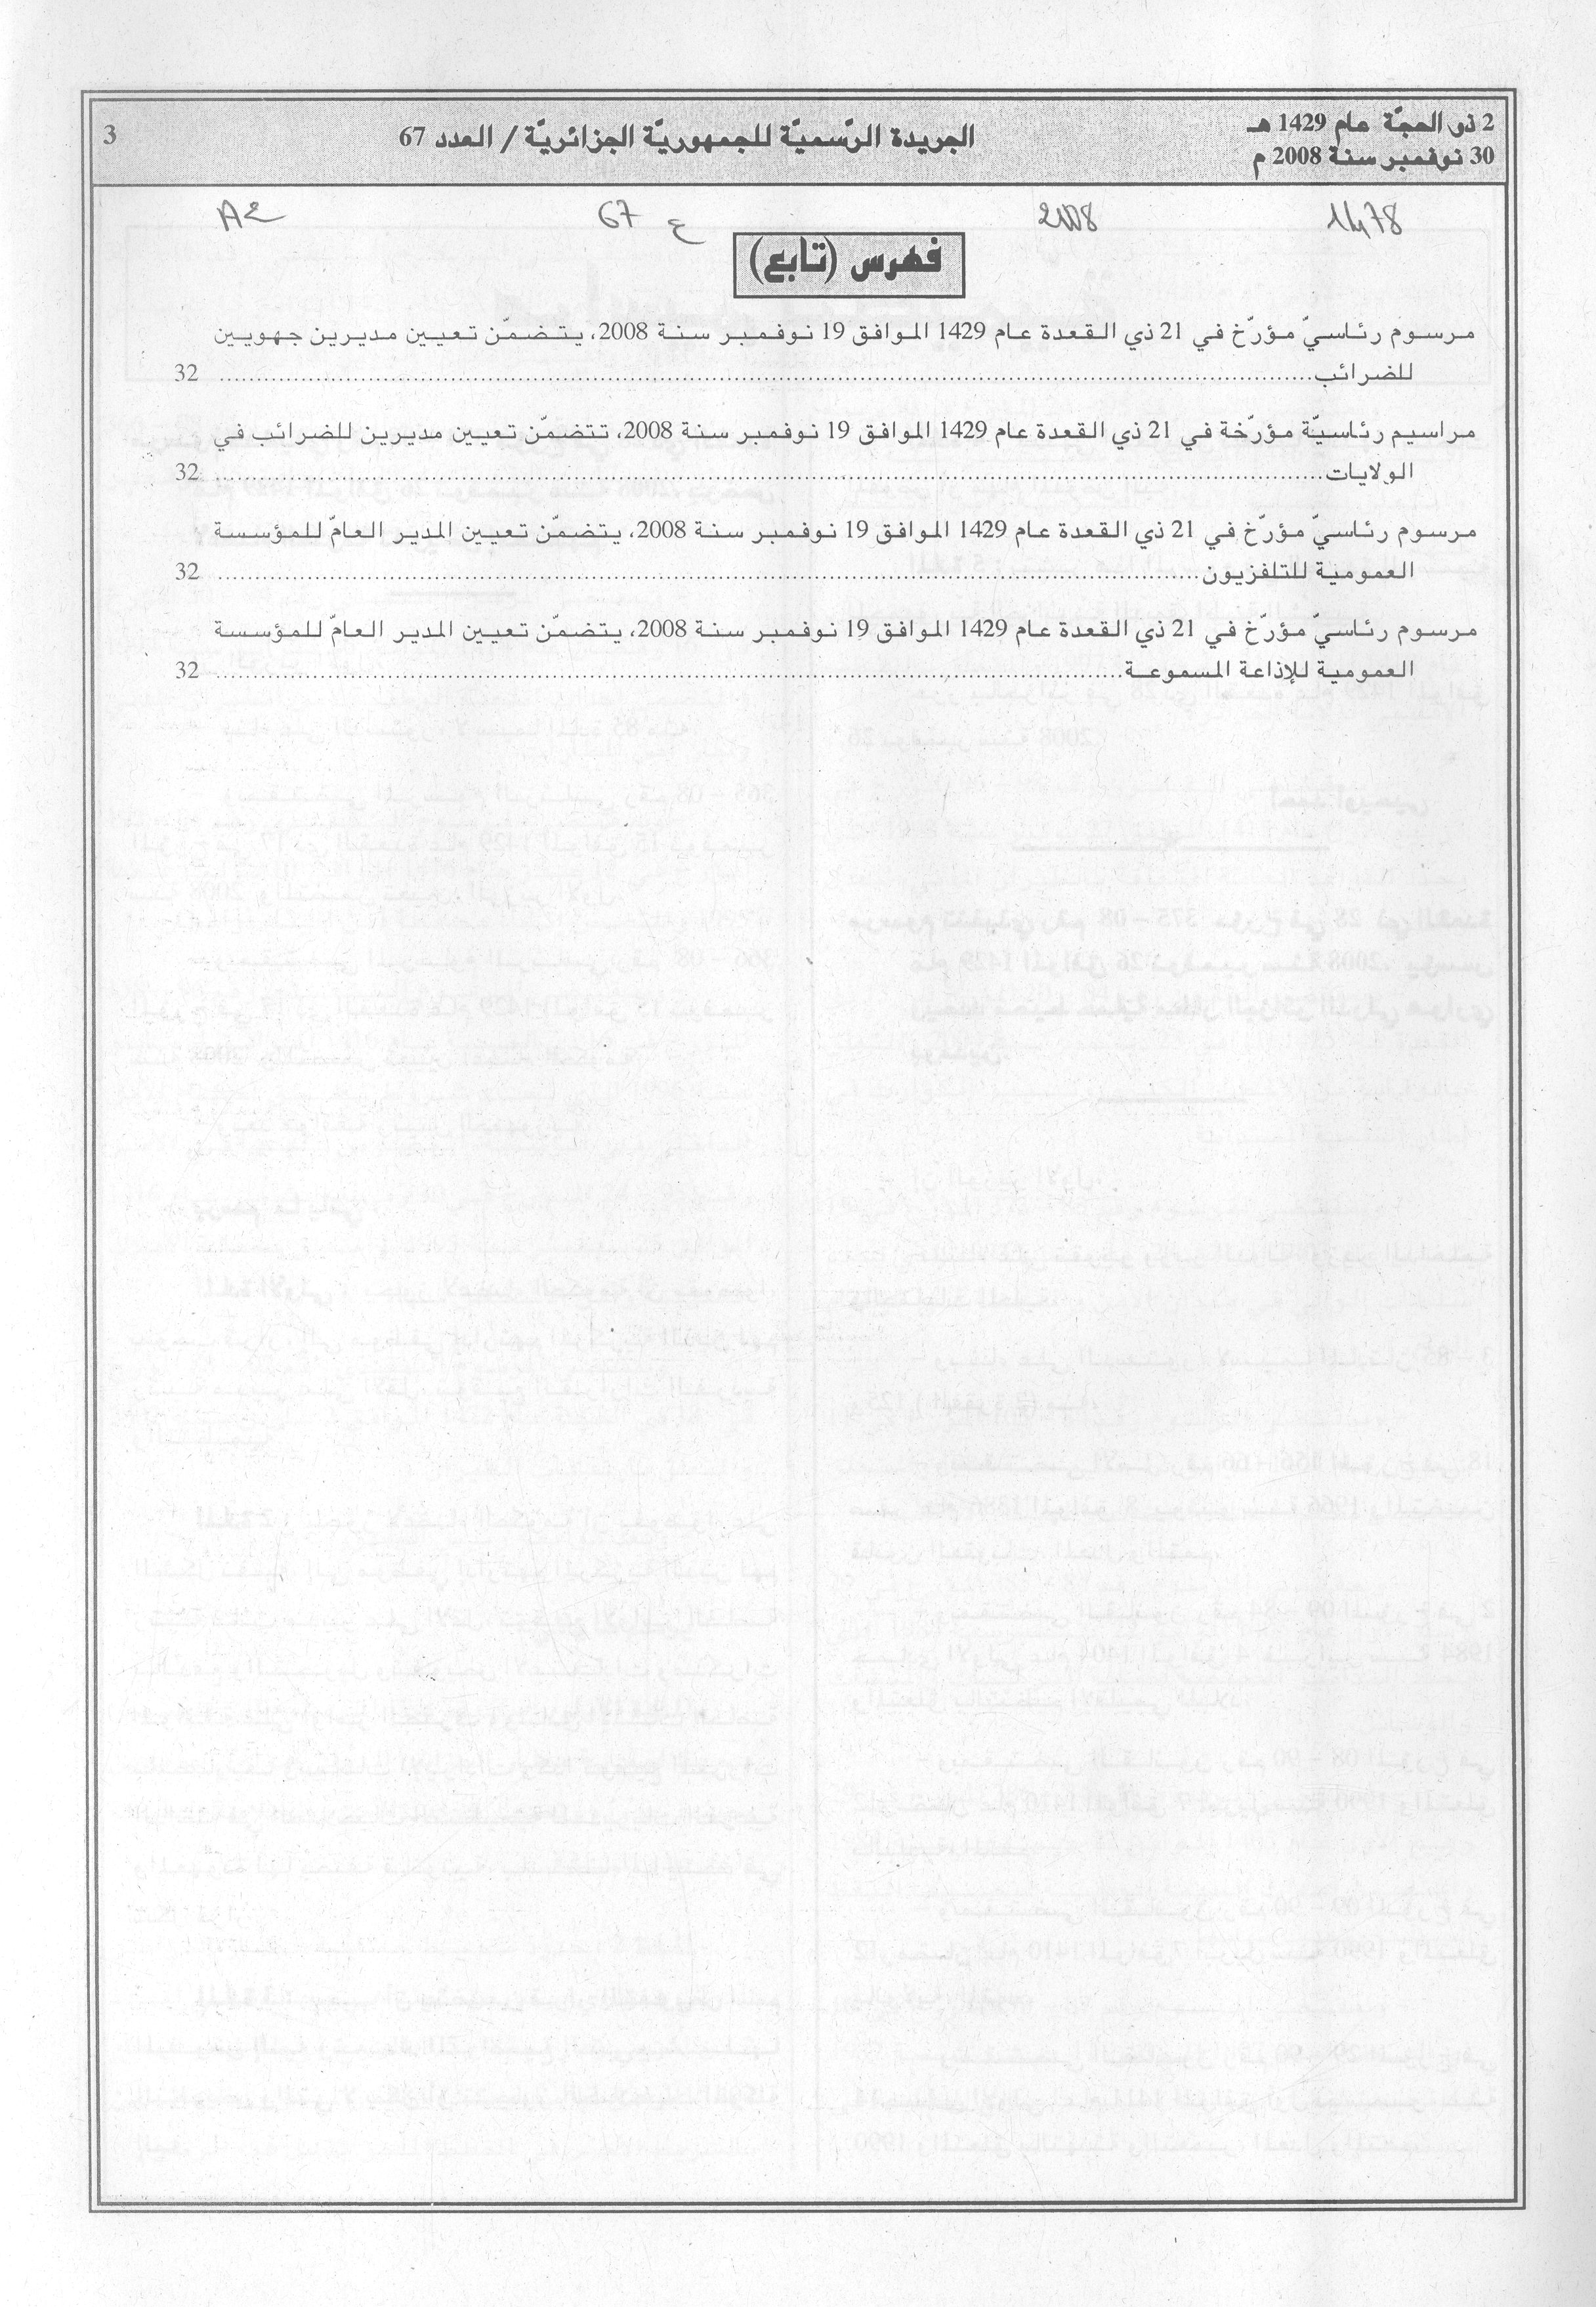 2 ذو الحجّة عام 1429 هـ
30 نوفمبر سنة 2008 م
الجريدة الرّسميّة للجمهوريّة الجزائريّة / العدد 67
3
1478
2008
ع 67
فهرس (تابع)
مرسوم رئاسيّ مؤرّخ في 21 ذي القعدة عام 1429 الموافق 19 نوفمبر سنة 2008، يتضمّن تعيين مديرين جهويين
للضرائب.................... 32
مراسيم رئاسيّة مؤرّخة في 21 ذي القعدة عام 1429 الموافق 19 نوفمبر سنة 2008، تتضمّن تعيين مديرين للضرائب في
الولايات.................... 32
مرسوم رئاسيّ مؤرّخ في 21 ذي القعدة عام 1429 الموافق 19 نوفمبر سنة 2008، يتضمّن تعيين المدير العامّ للمؤسسة
العمومية للتلفزيون.................... 32
مرسوم رئاسيّ مؤرّخ في 21 ذي القعدة عام 1429 الموافق 19 نوفمبر سنة 2008، يتضمّن تعيين المدير العامّ للمؤسسة
العمومية للإذاعة المسموعة.................... 32